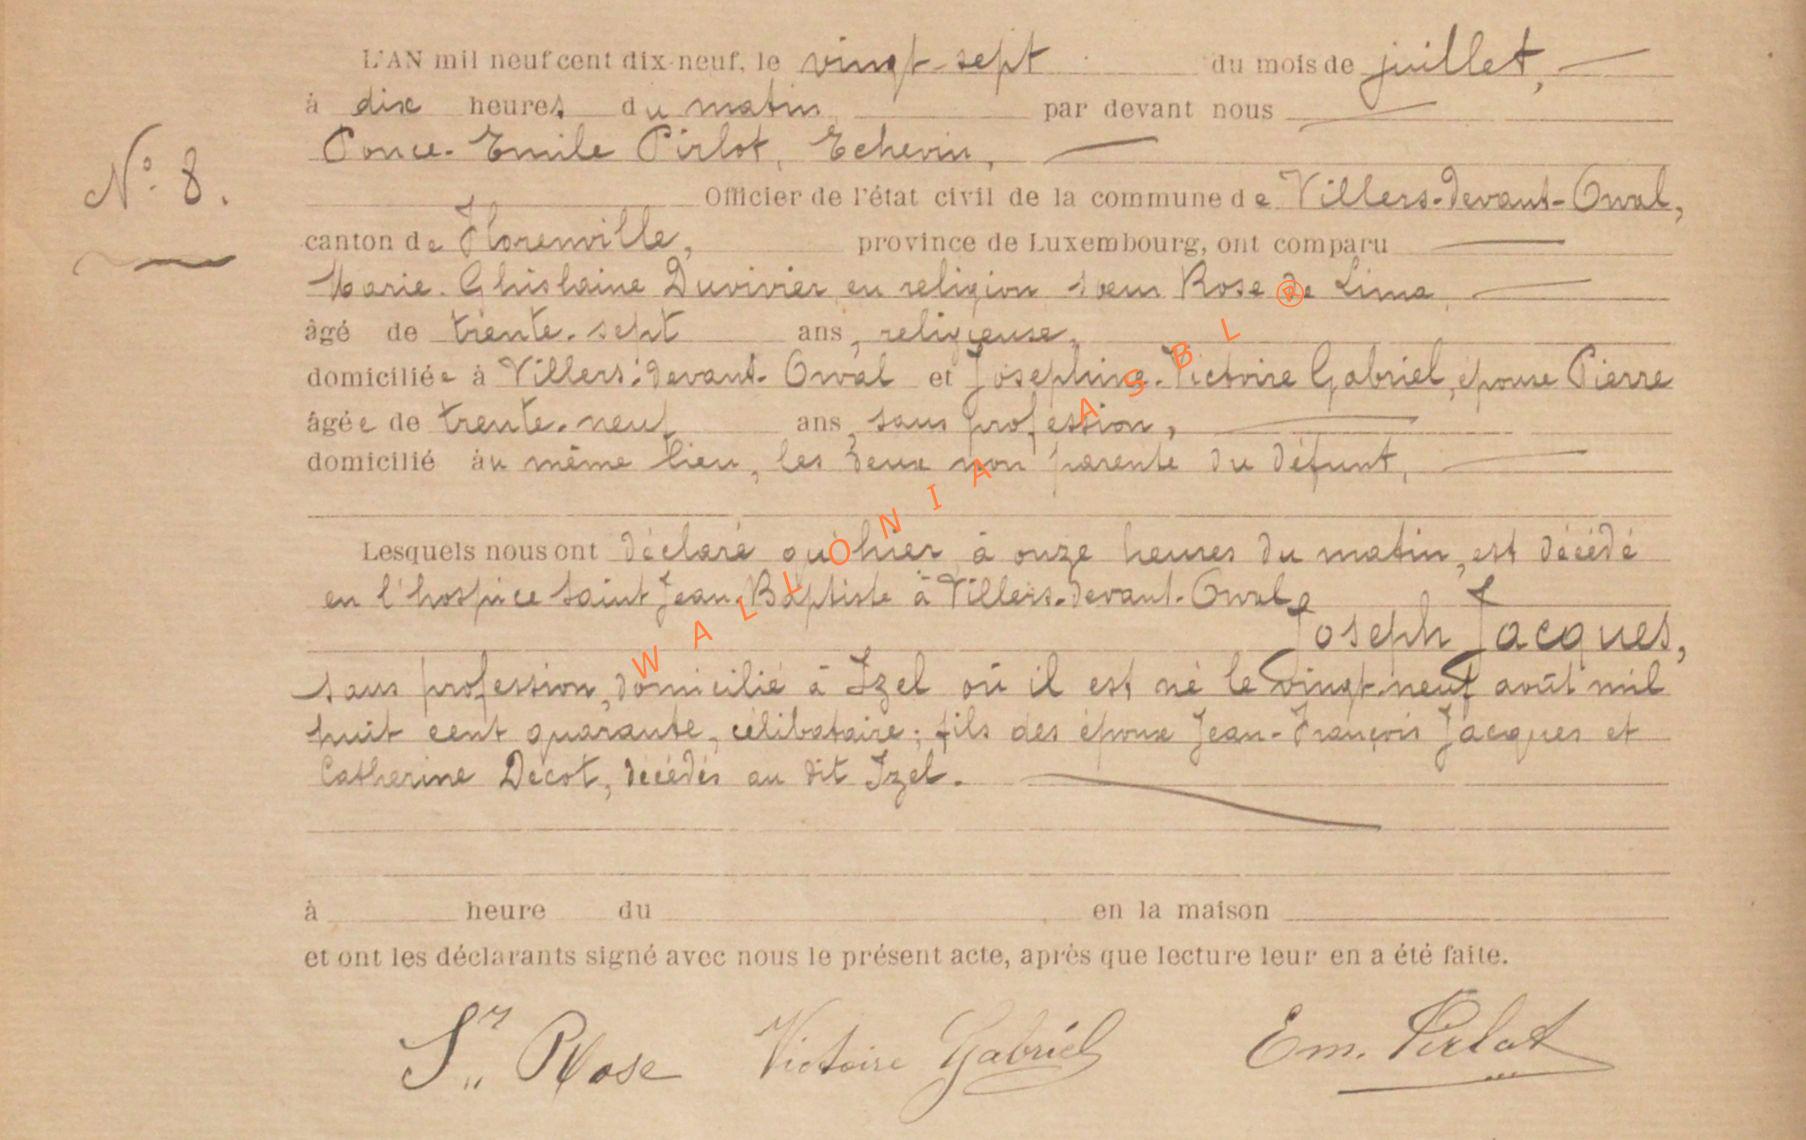 L'AN mil neuf cent dix-neuf, le vingt-sept du mois de juillet,
à dix heures du matin par devant nous
Ponce-Emile Pirlot, Echevin,
N° 8.
Officier de l'état civil de la commune de Villers-devant-Orval,
canton de Florenville, province de Luxembourg, ont comparu
Marie-Ghislaine Duvivier en religion sœur Rose de Lima
âgé de trente-sept ans, religieuse,
domiciliée à Villers-devant-Orval et Joséphine-Victoire Gabriel, épouse Pierre
âgée de trente-neuf ans, sans profession,
domicilié au même lieu, les deux non parente du défunt,
Lesquels nous ont déclaré qu'hier à onze heures du matin, est décédé
en l'hospice saint Jean-Baptiste à Villers-devant-Orval,
Joseph Jacques,
sans profession, domicilié à Izel où il est né le vingt-neuf août mil
huit cent quarante, célibataire; fils des époux Jean-François Jacques et
Catherine Décot, décédés au dit Izel.
à heure du en la maison
et ont les déclarants signé avec nous le présent acte, après que lecture leur en a été faite.
Sr Rose Victoire Gabriel Em. Pirlot
WALLONIA ASBL ®